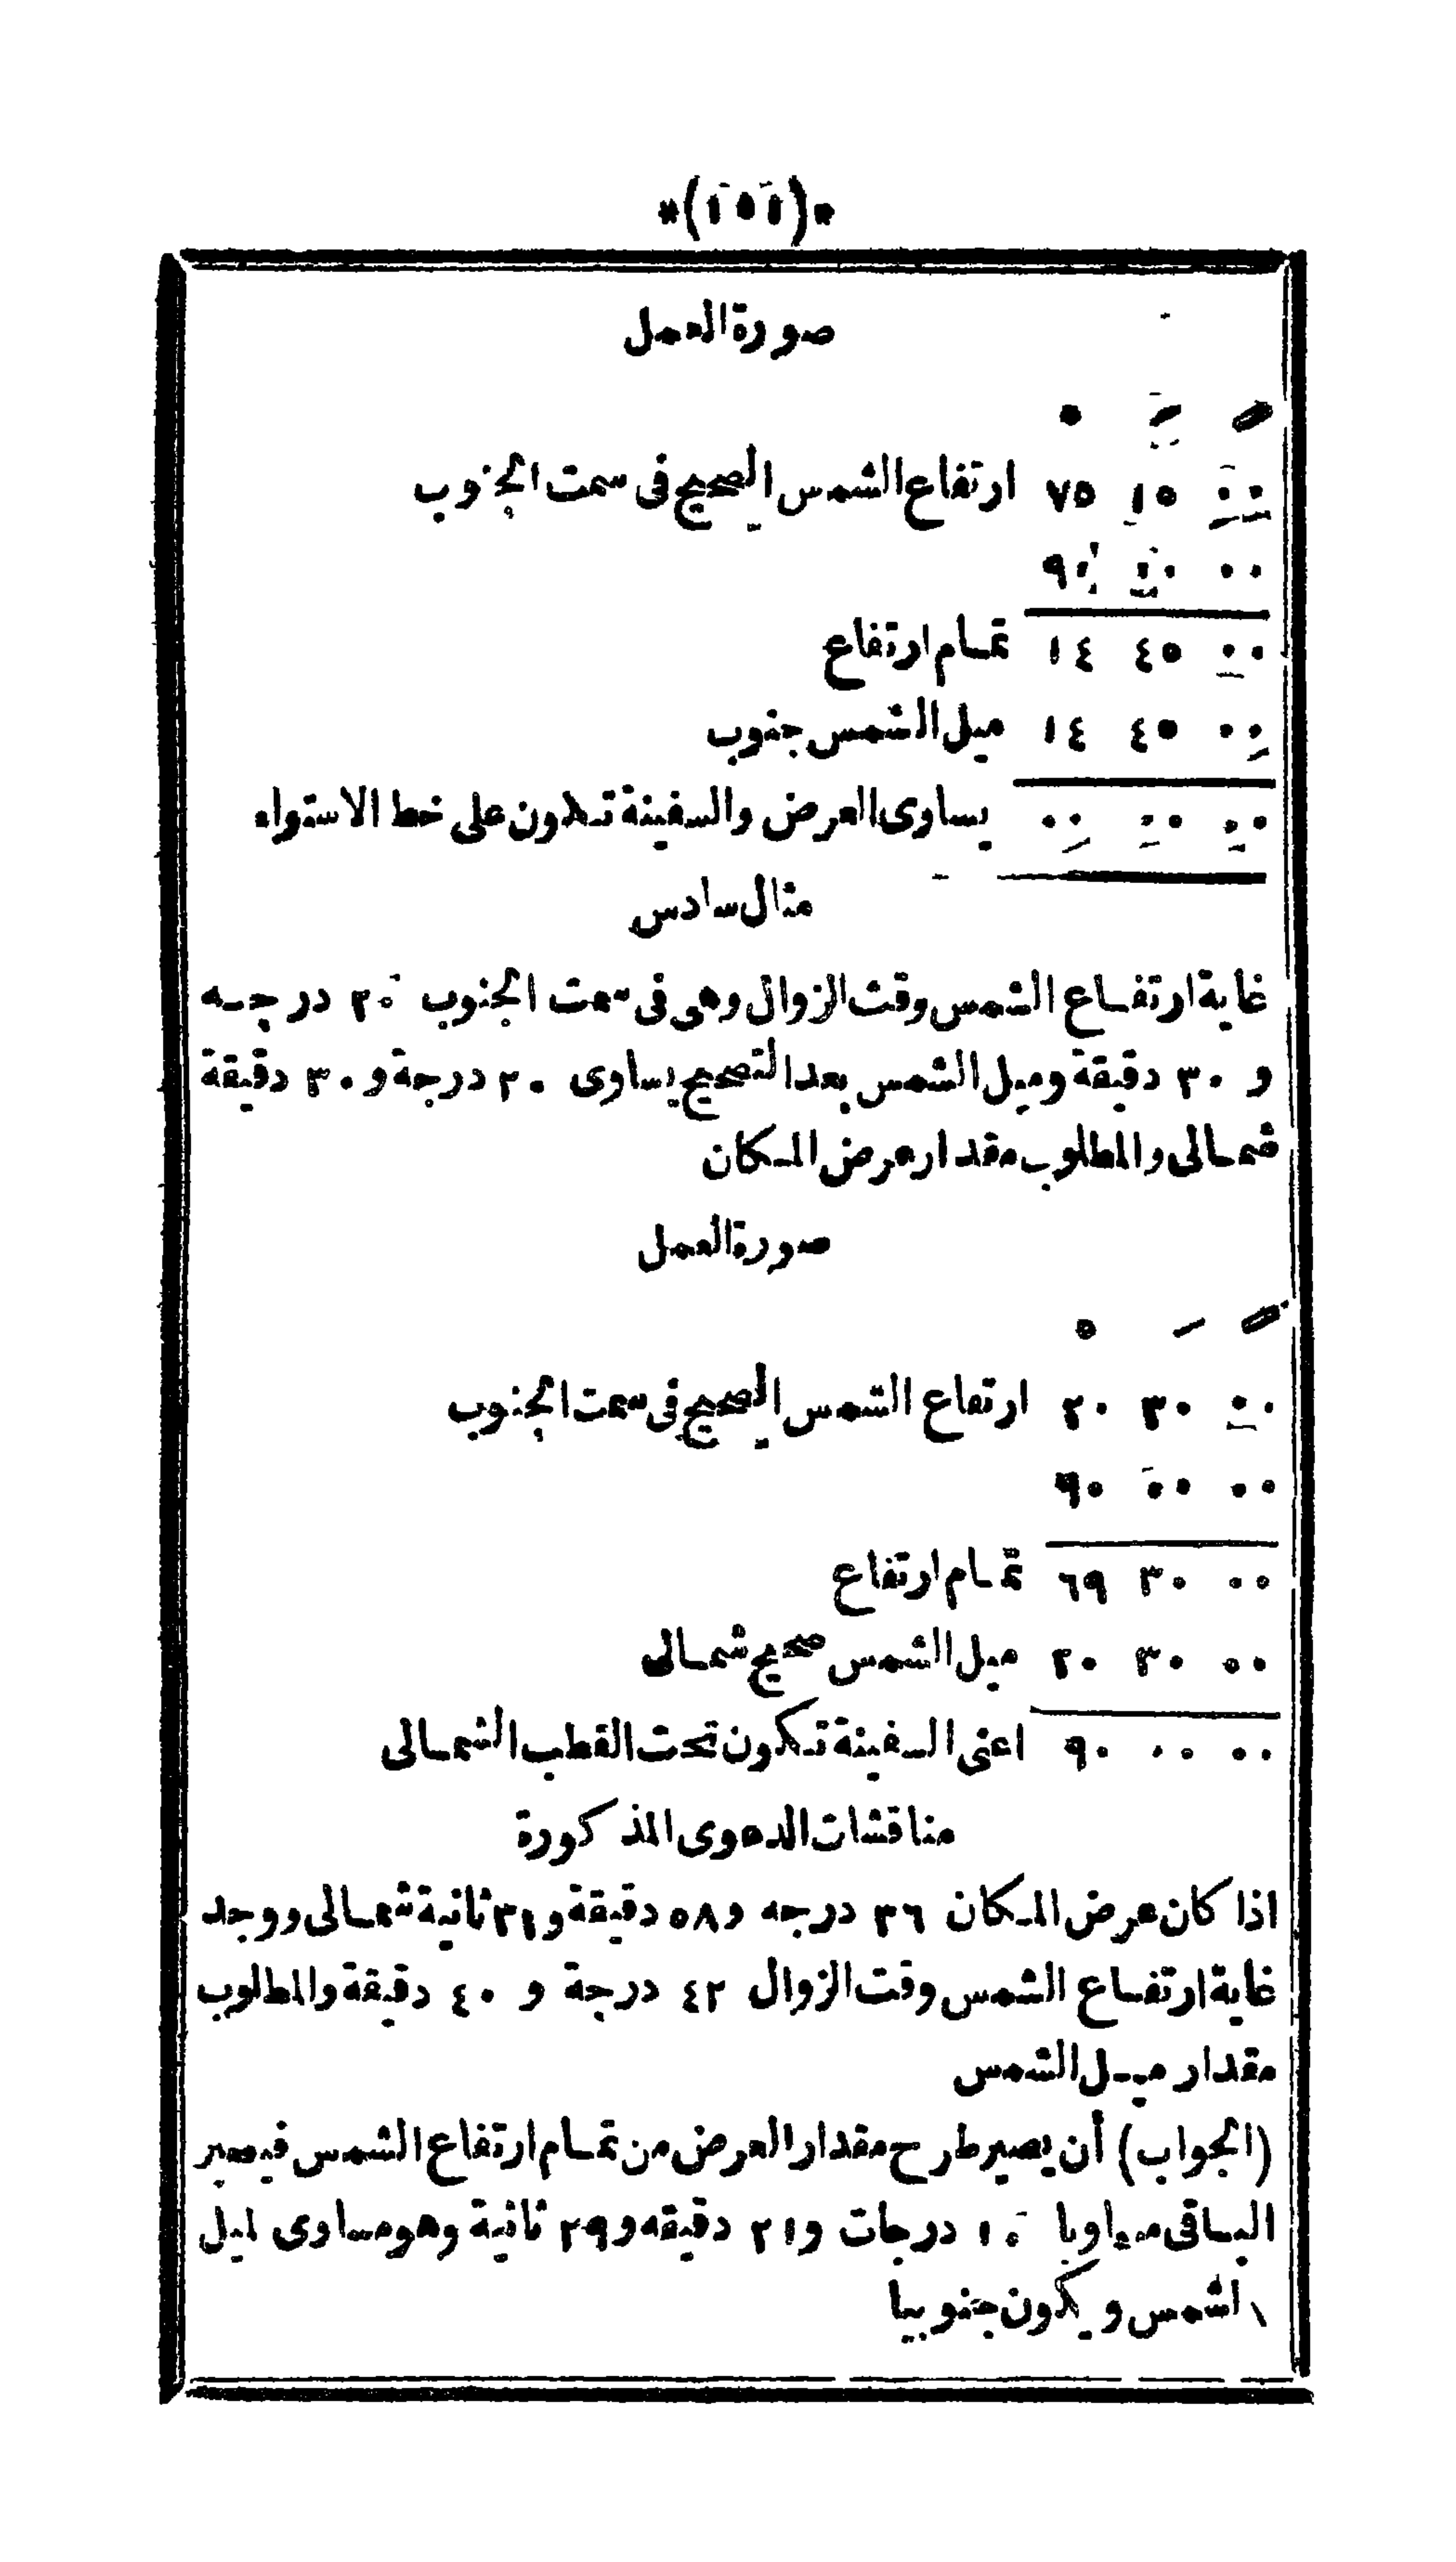 *(١٥١)*
صورة العمل
° ′ ″
٧٥ ١٥ ٠٠ ارتفاع الشمس الصحيح فى سمت الجنوب
٩٠ ٠٠ ٠٠
١٤ ٤٥ ٠٠ تمام ارتفاع
١٤ ٤٥ ٠٠ ميل الشمس جنوب
٠٠ ٠٠ ٠٠ يساوى العرض والسفينة تكون على خط الاستواء
مثال سادس
غاية ارتفاع الشمس وقت الزوال وهى فى سمت الجنوب ٢٠ درجه
و ٣٠ دقيقة وميل الشمس بعد التصحيح يساوى ٢٠ درجة و ٣٠ دقيقة
شمالى والمطلوب مقدار عرض المكان
صورة العمل
° ′ ″
٢٠ ٣٠ ٠٠ ارتفاع الشمس الصحيح فى سمت الجنوب
٩٠ ٠٠ ٠٠
٦٩ ٣٠ ٠٠ تمام ارتفاع
٢٠ ٣٠ ٠٠ ميل الشمس صحيح شمالى
٩٠ ٠٠ ٠٠ اعنى السفينة تكون تحت القطب الشمالى
مناقشات الدعوى المذكورة
اذا كان عرض المكان ٣٦ درجه و٥٨ دقيقة و٣١ ثانية شمالى ووجد
غاية ارتفاع الشمس وقت الزوال ٤٢ درجة و ٤٠ دقيقة والمطلوب
مقدار ميل الشمس
(الجواب) أن يصير طرح مقدار العرض من تمام ارتفاع الشمس فيصير
الباقى مساويا ١٠ درجات و٢١ دقيقه و٢٩ ثانية وهو مساوى لميل
الشمس ويكون جنوبيا